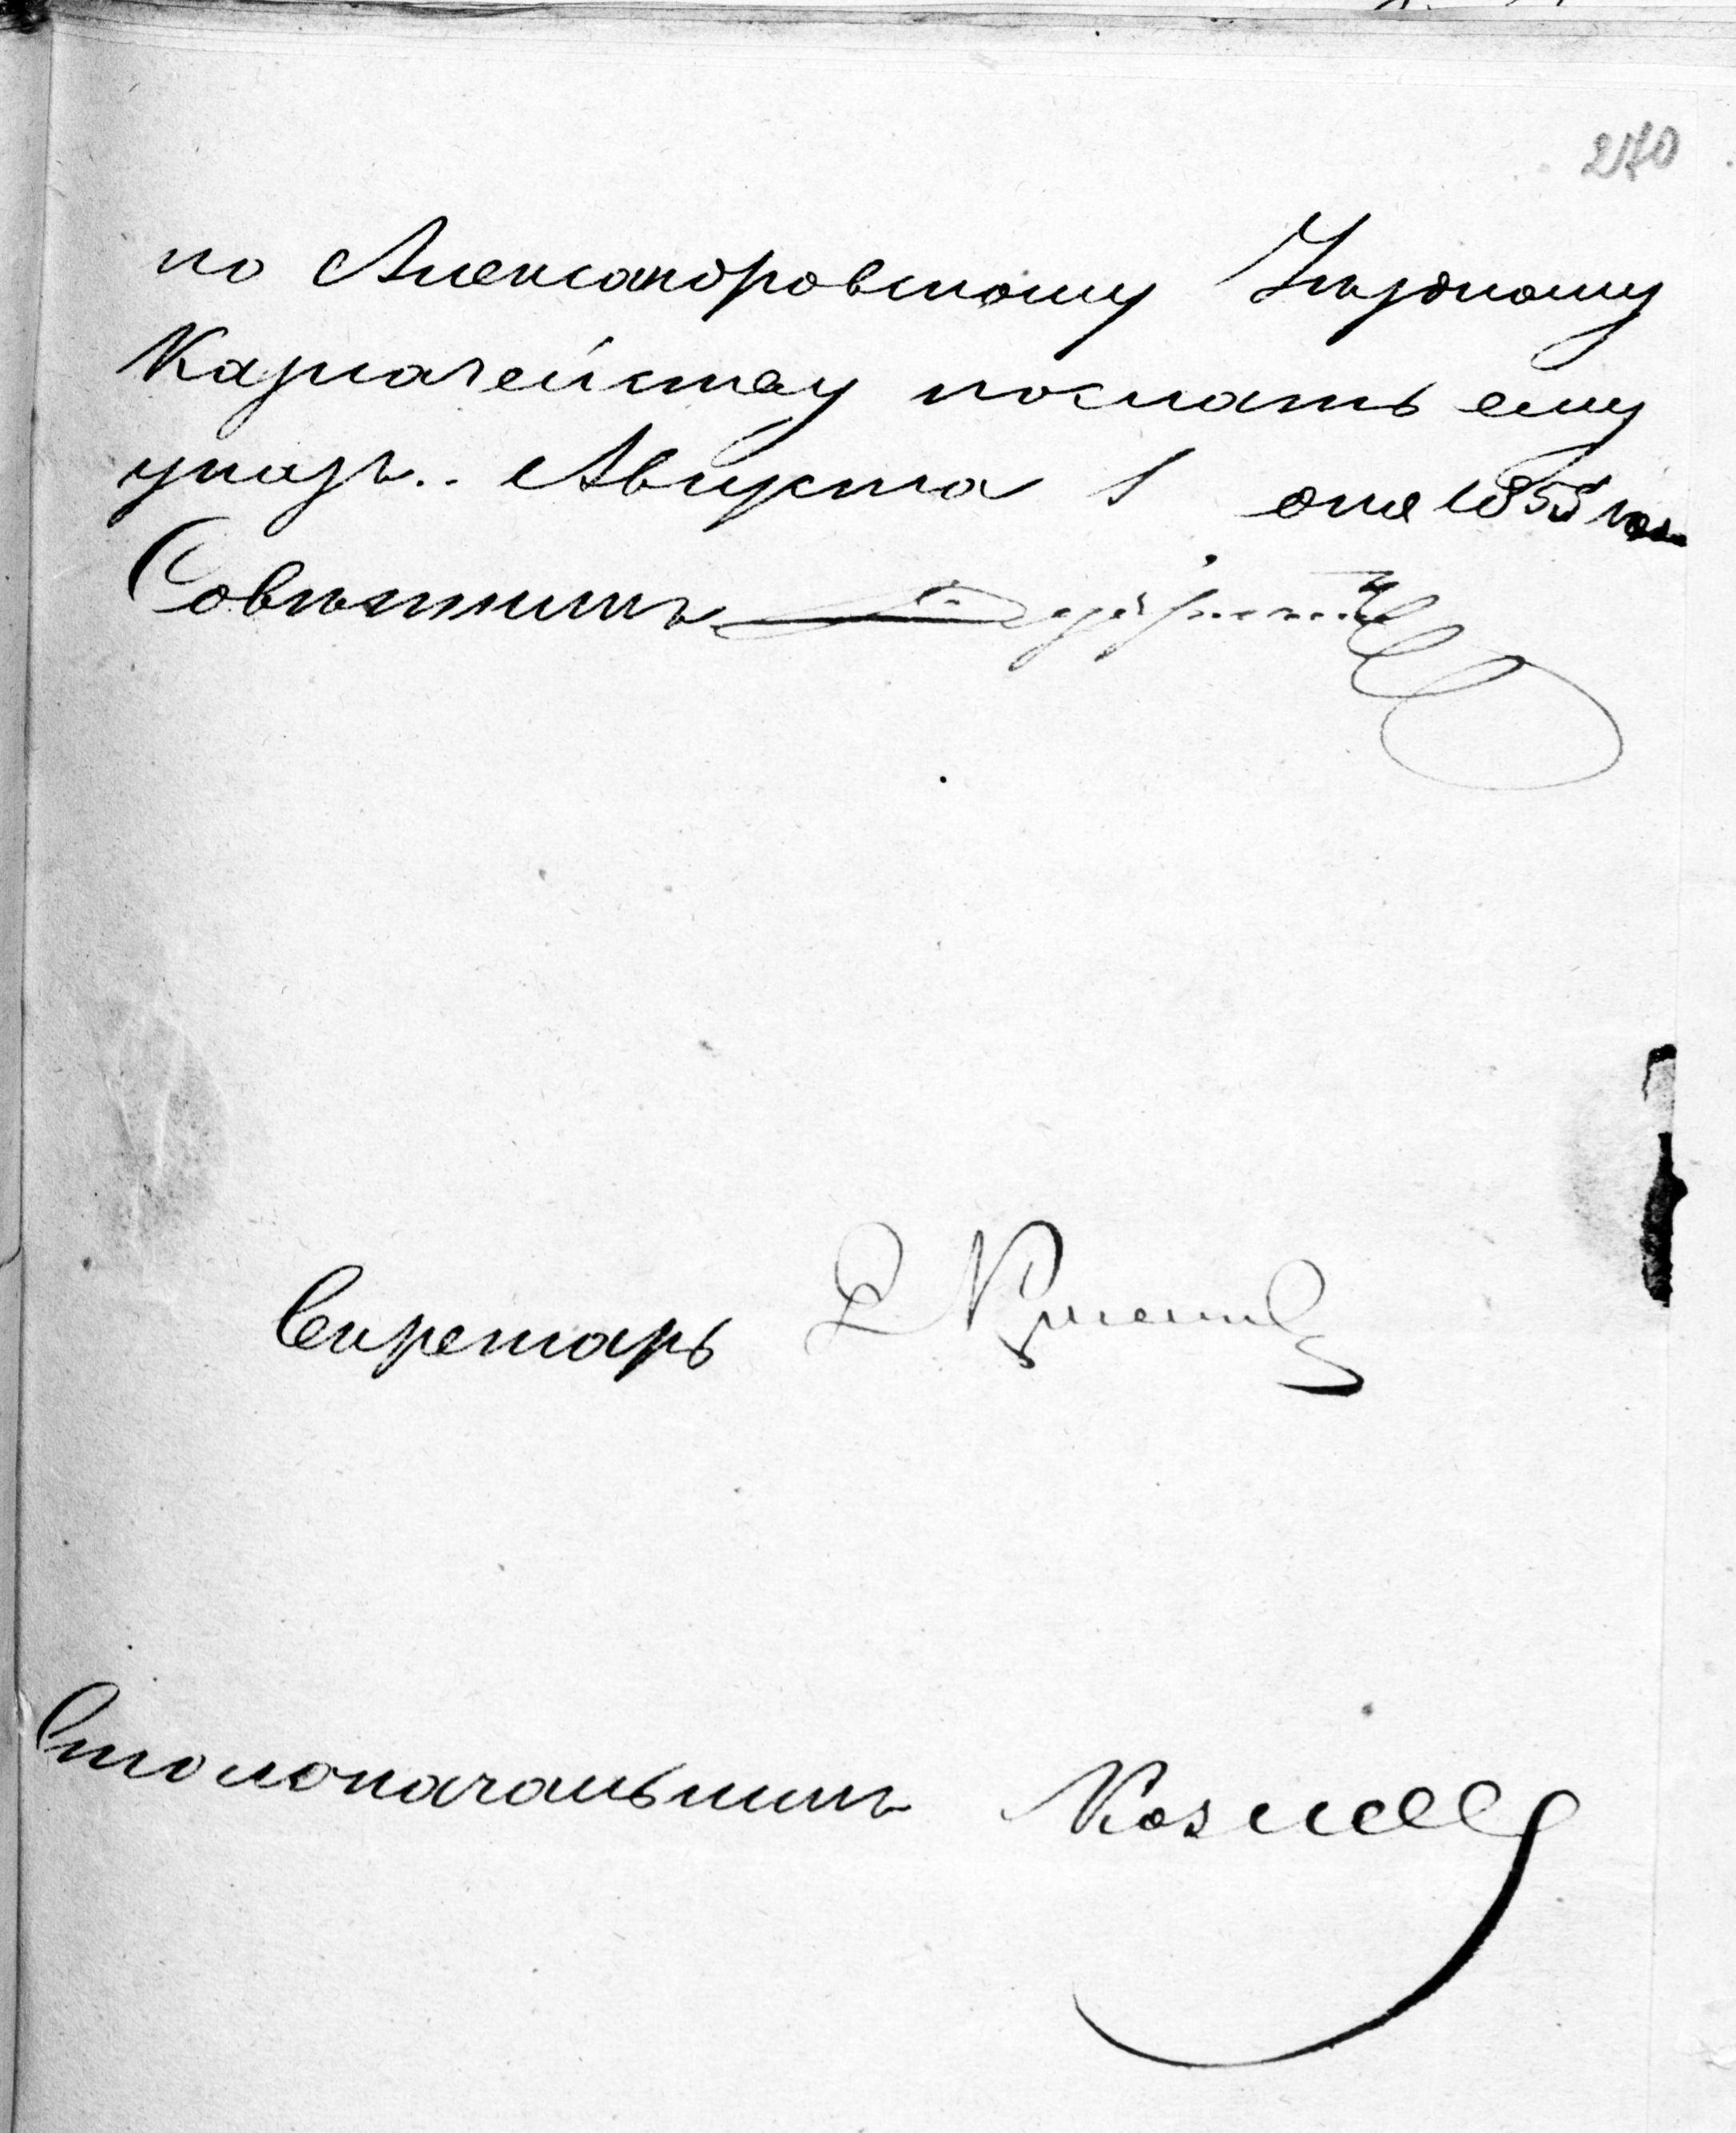 по Александровскому Уѣздному
Казначейству послать ему
указъ.. Августа 1 дня 1858 года
Совѣтникъ
Секретарь
Столоначальникъ Козлов